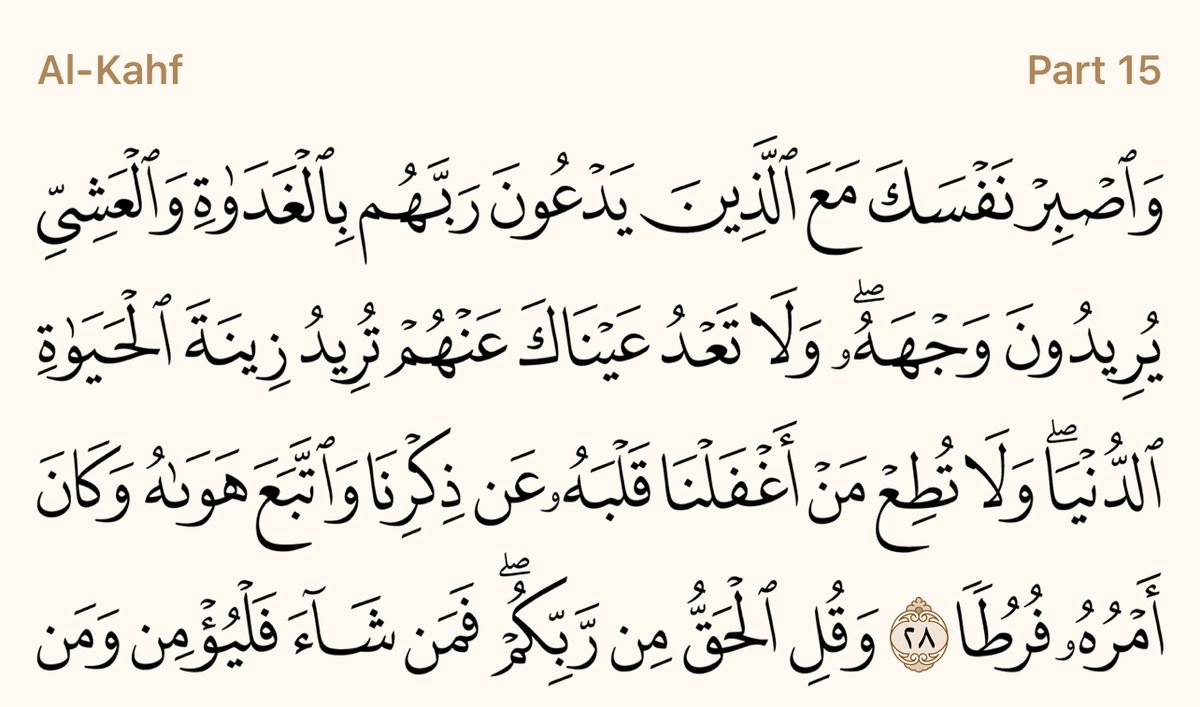 Al-Kahf
Part 15
وَٱصۡبِرۡ نَفۡسَكَ مَعَ ٱلَّذِينَ يَدۡعُونَ رَبَّهُم بِٱلۡغَدَوٰةِ وَٱلۡعَشِيِّ
يُرِيدُونَ وَجۡهَهُۥۖ وَلَا تَعۡدُ عَيۡنَاكَ عَنۡهُمۡ تُرِيدُ زِينَةَ ٱلۡحَيَوٰةِ
ٱلدُّنۡيَاۖ وَلَا تُطِعۡ مَنۡ أَغۡفَلۡنَا قَلۡبَهُۥ عَن ذِكۡرِنَا وَٱتَّبَعَ هَوَىٰهُ وَكَانَ
أَمۡرُهُۥ فُرُطٗا ٢٨ وَقُلِ ٱلۡحَقُّ مِن رَّبِّكُمۡۖ فَمَن شَآءَ فَلۡيُؤۡمِن وَمَن